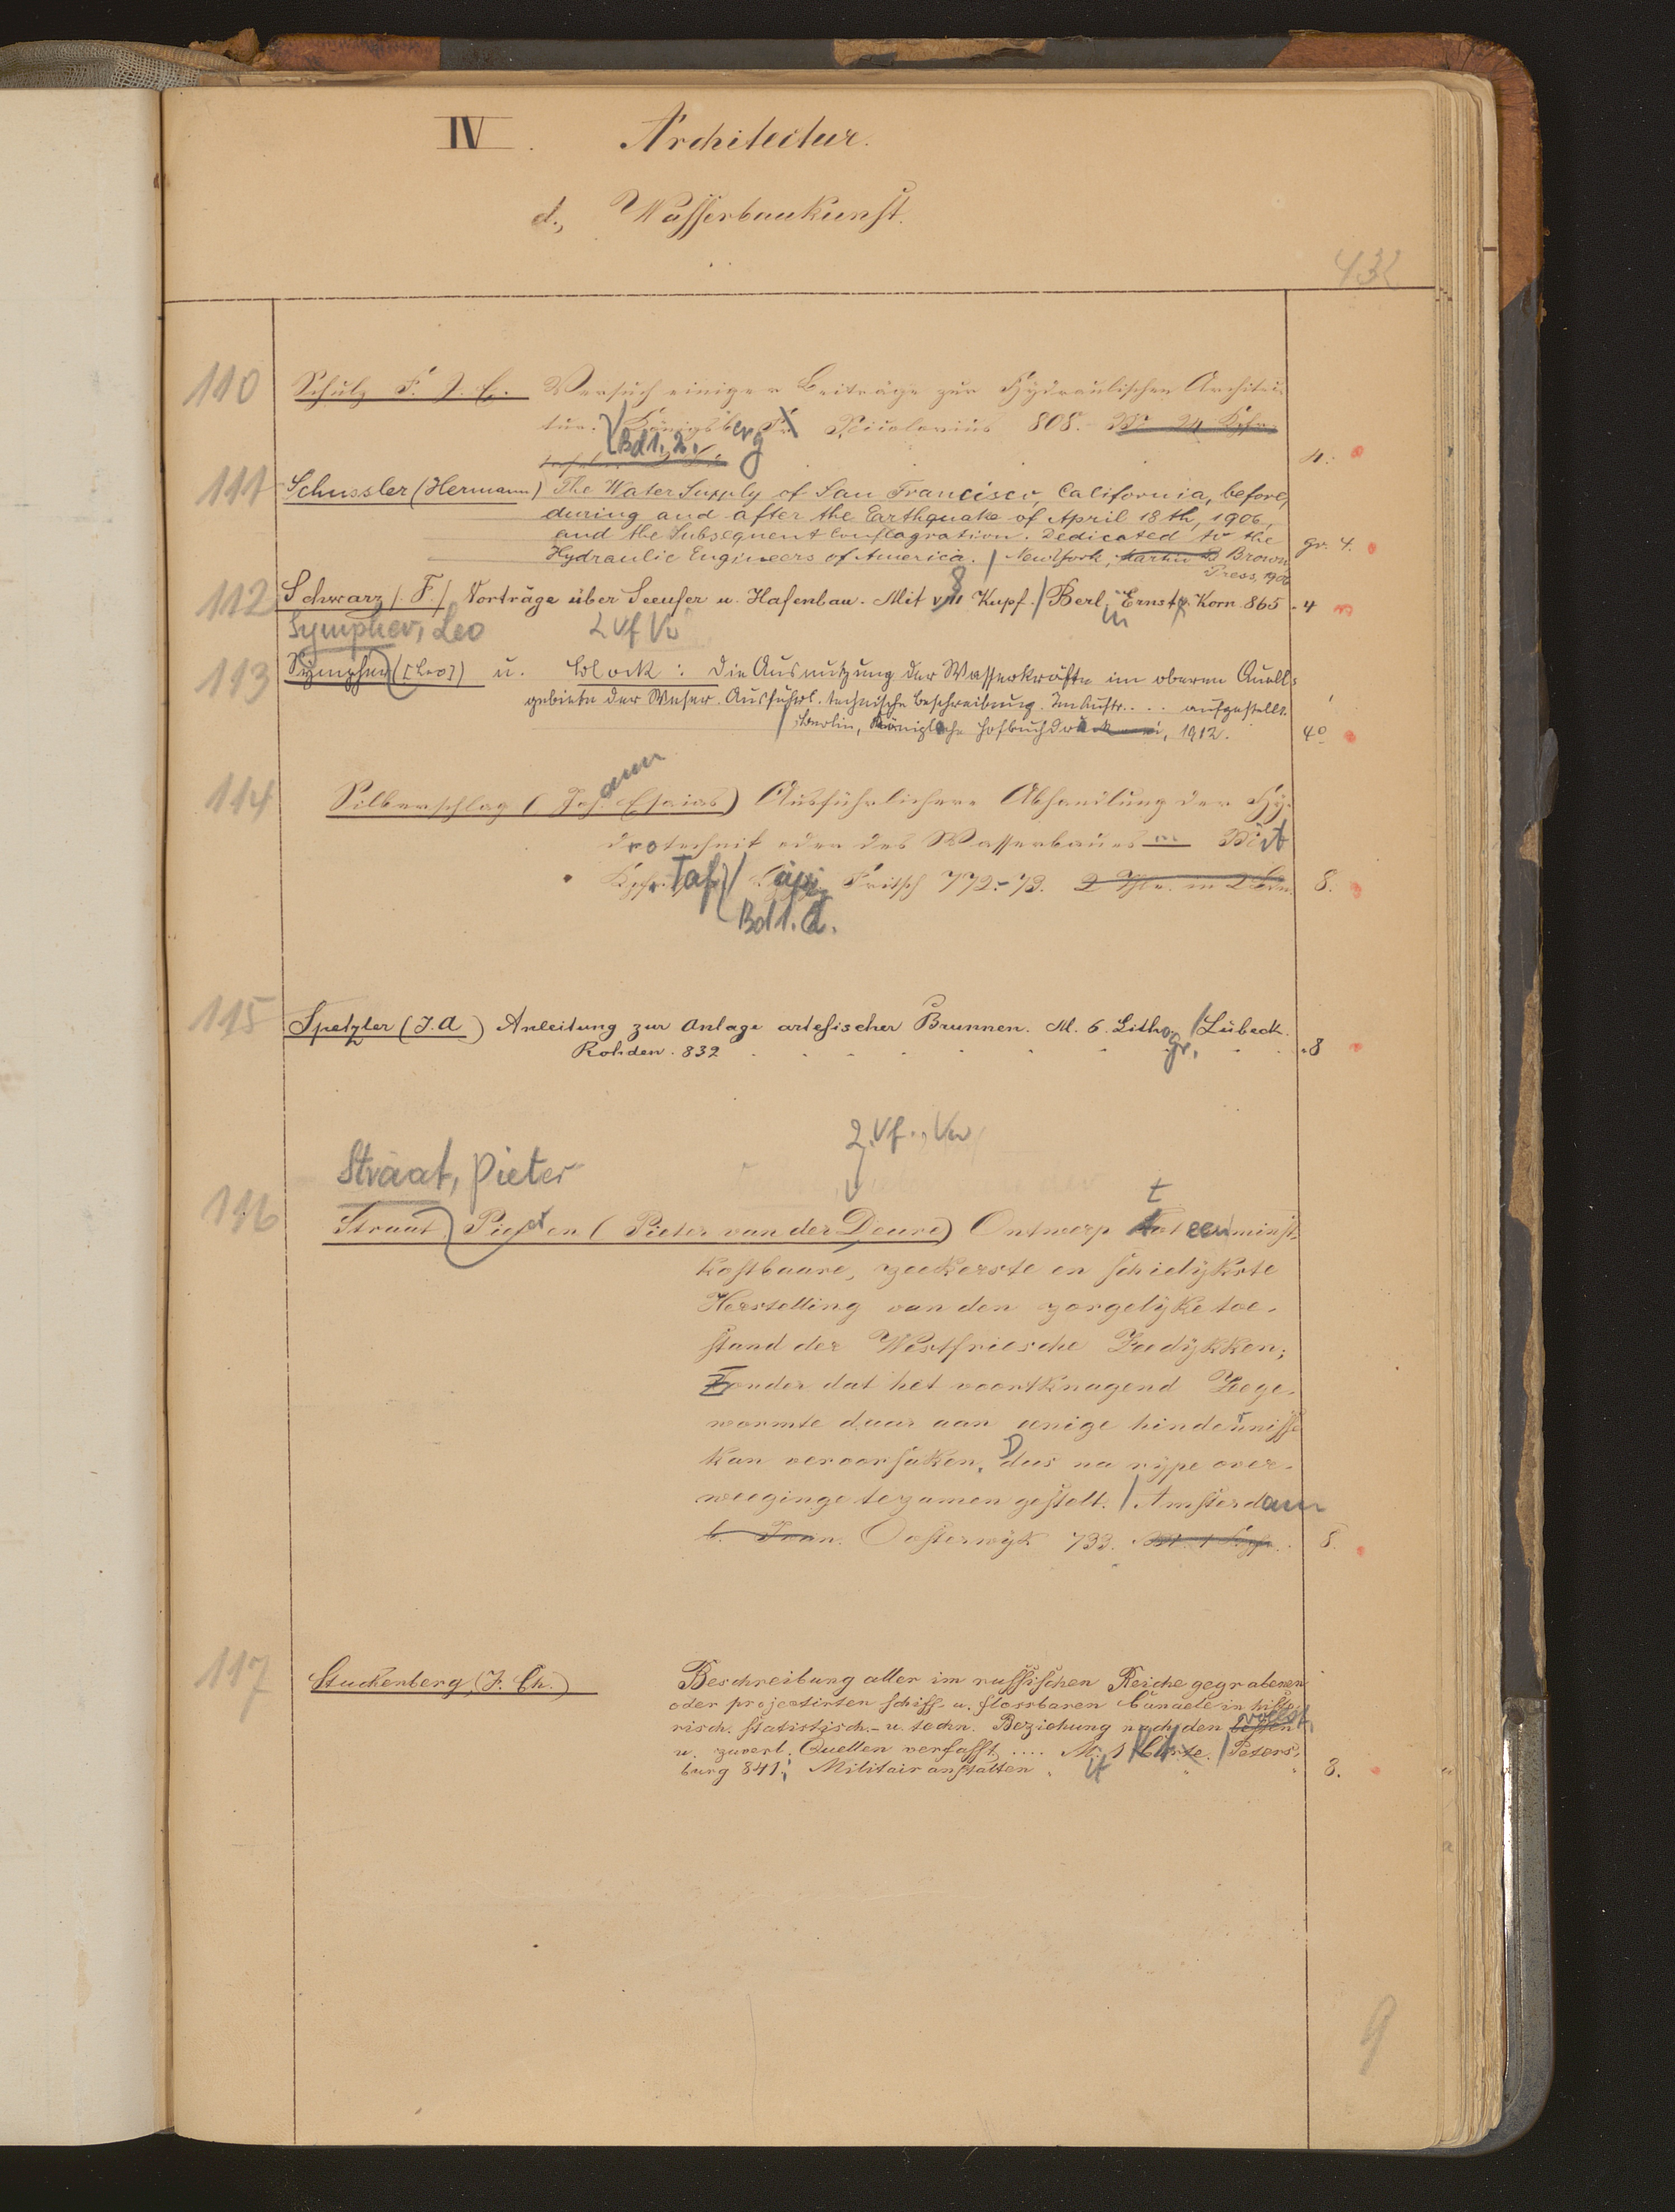 IV. Architectur.
d., Wasserbaukunst.
432
110 Schulz F. J. E. Versuch einiger Beiträge zur Hydraulischen Architec-
tur. Königsberg Nicolovius 808. Mit 24 Kpfr.
Bd 1. 2.
4.
111 Schussler (Hermann) The Water Supply of San Francisco, California, before,
during and after the Earthquake of April 18th, 1906,
and the Subsequent Conflagration. Dedicated to the
Hydraulic Engineers of America. / New York, Martin B Brown gr. 4.
Press, 1906
112 Schwarz (F.) Vorträge über Seeufer u. Hafenbau. Mit VIII 8 Kupf. / Berlin, Ernst & Korn 865 . 4
Sympher, Leo 2 Vf Vw
113 Sympher ([Leo]) u. Block: Die Ausnutzung der Wasserkräfte im oberen Quell-
gebiete der Weser. Ausführl. technische Beschreibung. Im Auftr. . . . aufgestellt.
/ Berlin, Königliche Hofbuchdruckerei, 1912. 4o
114 Silberschlag (Johann Esaias) Ausführlichere Abhandlung der Hy-
drotechnik oder des Wasserbaues Mit
Kpfr. Taf. / Leipzig Fritsch 772-73. 2 Thle. in 2 Bdn. 8.
Bd 1. 2.
115 Spetzler (J. A) Anleitung zur Anlage artesischer Brunnen. M. 6. Lithogr. / Lübeck.
Rohden. 832 . 8
2. Vf., Vw
Straat, Pieter
116 Straat, Pieter en (Pieter van der Deure) Ontwerp tot een minst
kostbaare, zeekerste en schielykste
Herstelling van den zorgelyke toe-
stand der Westfriesche Zeedykken;
Zonder dat het voortknagend Zeege-
wormte daar aan eenige hindernisse
kan veroorsaken. Dus na rype over-
weeginge tezamen gestelt. / Amsterdam
b. Joan. Oosterwyk 733. M. 1 Kpfr. 8.
117 Stuckenberg, (J. Ch.) Beschreibung aller im russischen Reiche gegrabenen
oder projectirten schiff- u. flossbaren Canaele in histo-
risch. statistisch.- u. techn. Beziehung nach den besten vollst.
u. zuverl. Quellen verfasst .... M. 1 Karte. / Peters-
burg 841; Militairanstalten 8.
9